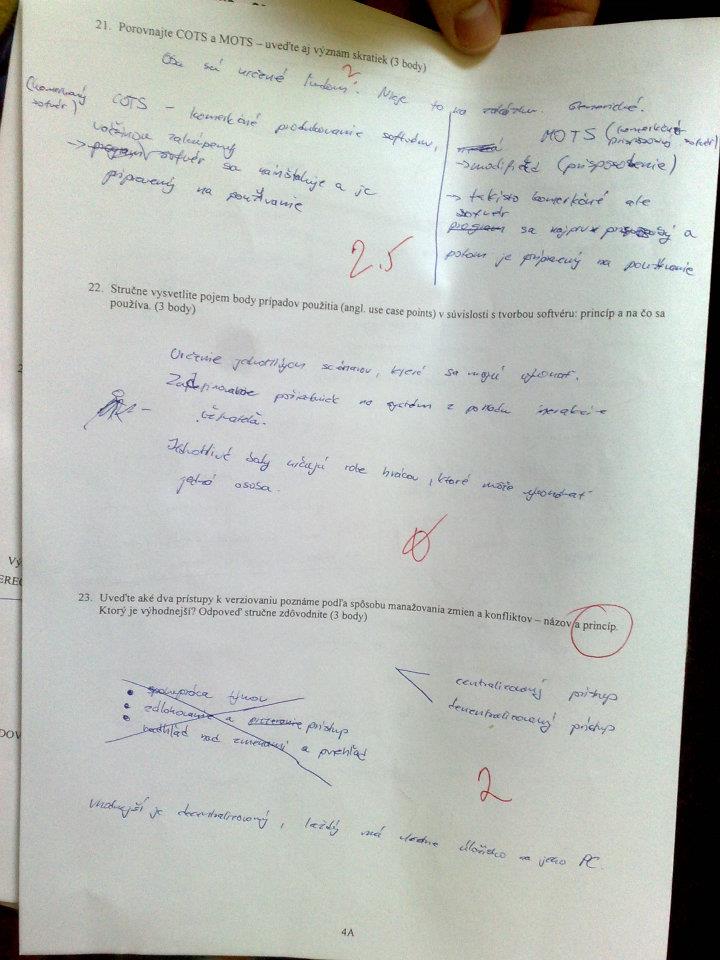 21. Porovnajte COTS a MOTS – uveďte aj význam skratiek (3 body)
Oba sú určené ľuďom. Nieje to na zákazku. Generické.
?
(komerčný softvér)
COTS – komerčné produkovanie softvéru,
väčšinou zakúpený
→ softvér sa nainštaluje a je
pripravený na používanie
MOTS (komerčné softvér)
→ modified (prispôsobenie)
→ takisto komerčné ale
softvér
sa najprv a
potom je pripravený na používanie
2.5
22. Stručne vysvetlite pojem body prípadov použitia (angl. use case points) v súvislosti s tvorbou softvéru: princíp a na čo sa
používa. (3 body)
Určenie jednotlivých scénarov, ktoré sa majú vykonať.
požiadaviek na systém z pohľadu interakcie
užívateľa.
Jednotlivé body určujú role hráčov, ktoré môže vykonávať
jedna osoba.
0
23. Uveďte aké dva prístupy k verziovaniu poznáme podľa spôsobu manažovania zmien a konfliktov – názov a princíp.
Ktorý je výhodnejší? Odpoveď stručne zdôvodnite (3 body)
• spolupráca tímov
• zdlohovanie a prístup
• nadhľad nad zmenami a prehľad
centralizovaný prístup
decentralizovaný prístup
2
Vhodnejší je decentralizovaný, každý má vlastné úložisko na jeho PC.
4A